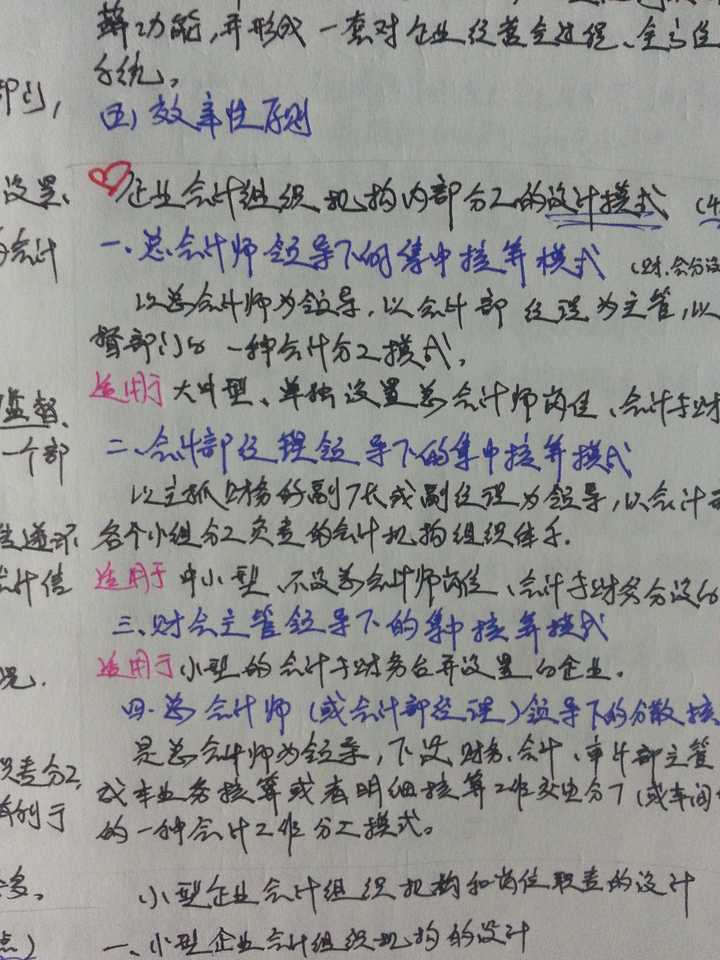 算功能,并形成一套对企业经营全过程、全方位
系统。
(五)效率性原则
企业会计组织机构内部分工的设计模式 (4
一、总会计师领导下的集中核算模式 (财、会分设
以总会计师为领导,以会计部经理为主管,以
督部门的一种会计分工模式。
适用于大中型、单独设置总会计师岗位、会计与财
二、会计部经理领导下的集中核算模式
以主抓财务的副厂长或副经理为领导,以会计部
各个小组分工负责的会计机构组织体系。
适用于中小型、不设总会计师岗位、会计与财务分设的
三、财会主管领导下的集中核算模式
适用于小型的会计与财务合并设置的企业。
四、总会计师(或会计部经理)领导下的分散核
是总会计师为领导,下设财务、会计、审计部主管
成本业务核算或者明细核算工作交由分厂(或车间
的一种会计工作分工模式。
小型企业会计组织机构和岗位职责的设计
一、小型企业会计组织机构的设计
部门,
设置、
与会计
监督、
一个部
计信
况.
职责分工,
有利于
多。
点)